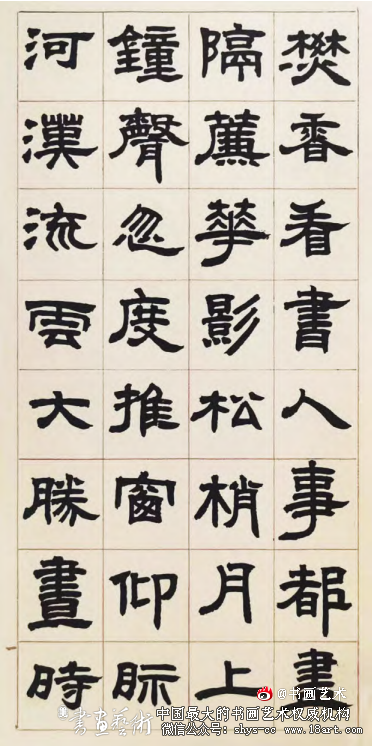 燓香看書人事都盡
隔薕華影松梢月上
鐘聲忽度推窗仰眎
河漢流雲大勝晝時
@书画艺术
書畫藝術
中国最大的书画艺术权威机构
微信公众号: shys-cc www.18art.com